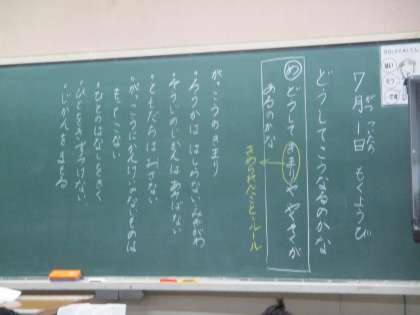 7月1日 もくようび
がつ ついたち
どうしてこうなるのかな
め どうして きまりや やくそくが
あるのかな
きめられたこと・ルール
がっこうのきまり
・ろうかは はしらない みぎがわ
・そうじのじかんは あそばない
・ともだちは おさない
・がっこうに かんけいのないものは
もってこない
・ひとのはなしをきく
・ひとをきずつけない
・じかんをまもる